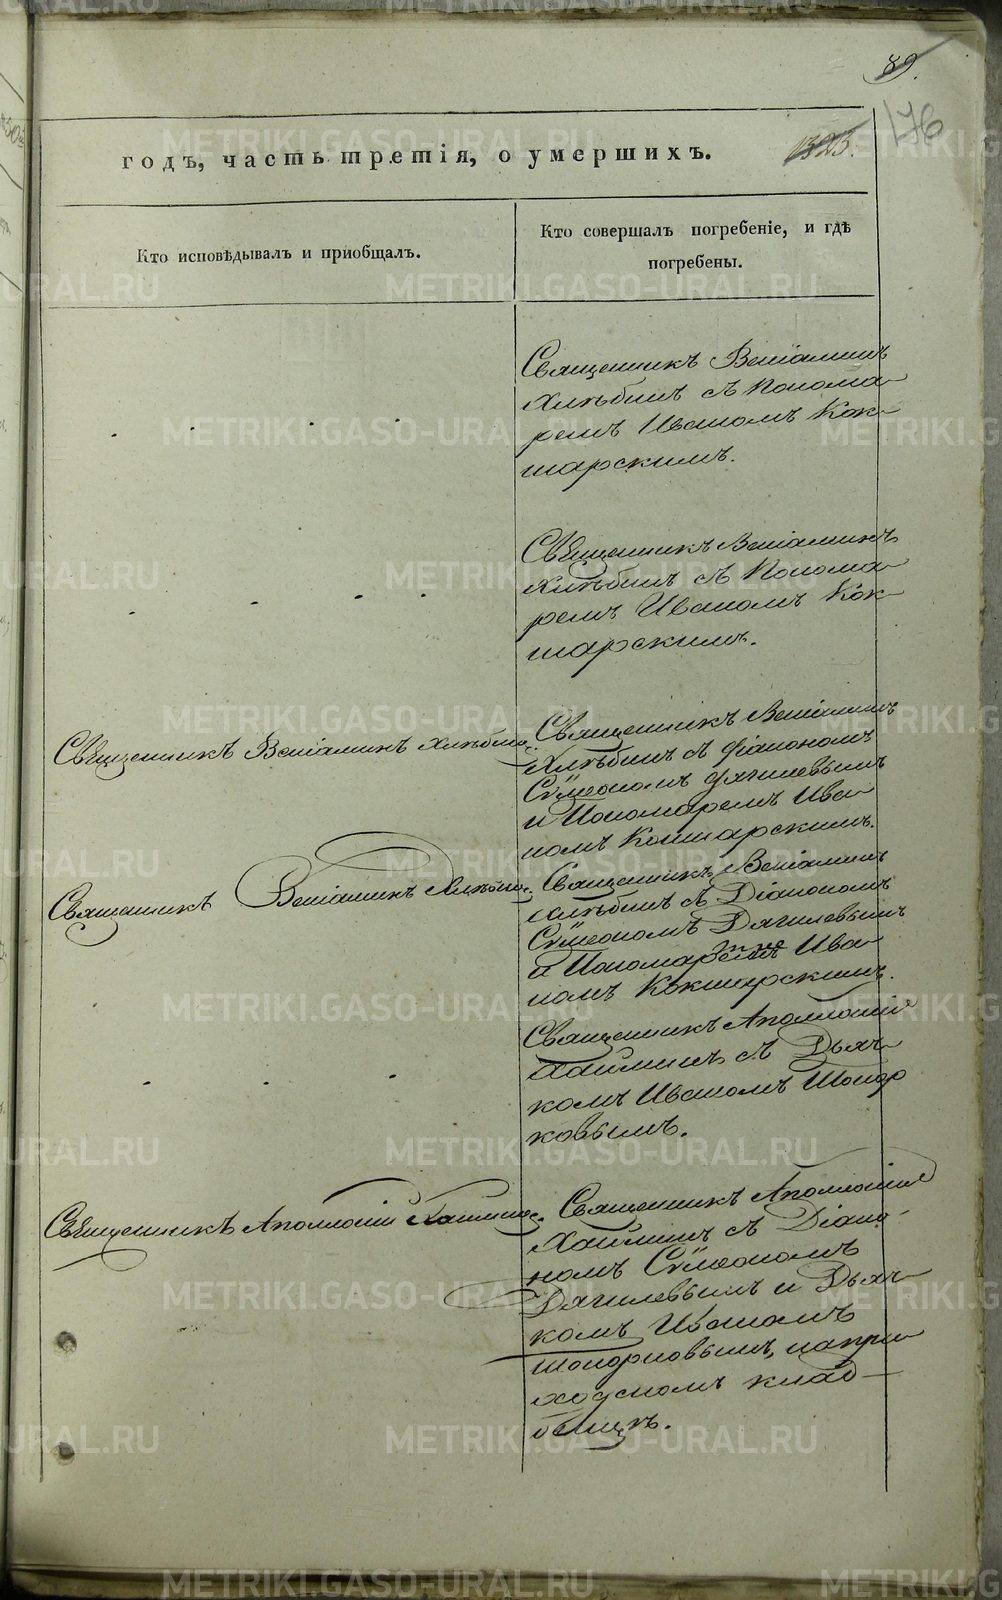 89.
176
годъ, часть третія, о умершихъ.
1323.
Кто исповѣдывалъ и пріобщалъ.
Кто совершалъ погребеніе, и гдѣ
погребены.
Священникъ Веніаминъ
Хлѣбинъ съ Понома-
ремъ Иваномъ Кок-
шарскимъ.
Священникъ Веніаминъ
Хлѣбинъ съ Понома-
ремъ Иваномъ Кок-
шарскимъ.
Священникъ Веніаминъ Хлѣбинъ.
Священникъ Веніаминъ
Хлѣбинъ съ Діакономъ
Сѵмеономъ Дягилевымъ
и Пономаремъ Ива-
номъ Кокшарскимъ.
Священникъ Веніаминъ Хлѣбинъ.
Священникъ Веніаминъ
Хлѣбинъ съ Діакономъ
Сѵмеономъ Дягилевымъ
и Пономаремъ Ива-
номъ Кокшарскимъ.
Священникъ Аполлоній
съ Дьяч-
комъ Иваномъ
Священникъ Аполлоній
Священникъ Аполлоній
съ Діако-
номъ Сѵмеономъ
Дягилевымъ и Дьяч-
комъ Иваномъ
на при-
ходскомъ клад-
бищѣ.
METRIKI.GASO-URAL.RU